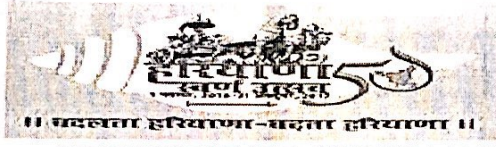 हरियाणा 50
स्वर्ण जयंती
।। बदलता हरियाणा-बढ़ता हरियाणा ।।